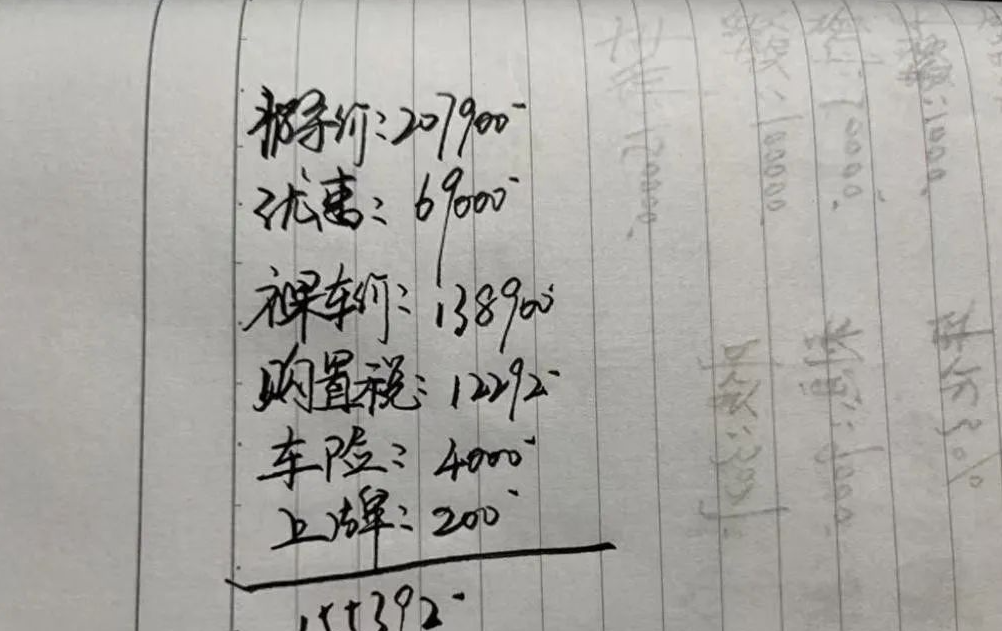 指导价:207900
优惠:69000
裸车价:138900
购置税:12292
车险:4000
上牌:200
155392